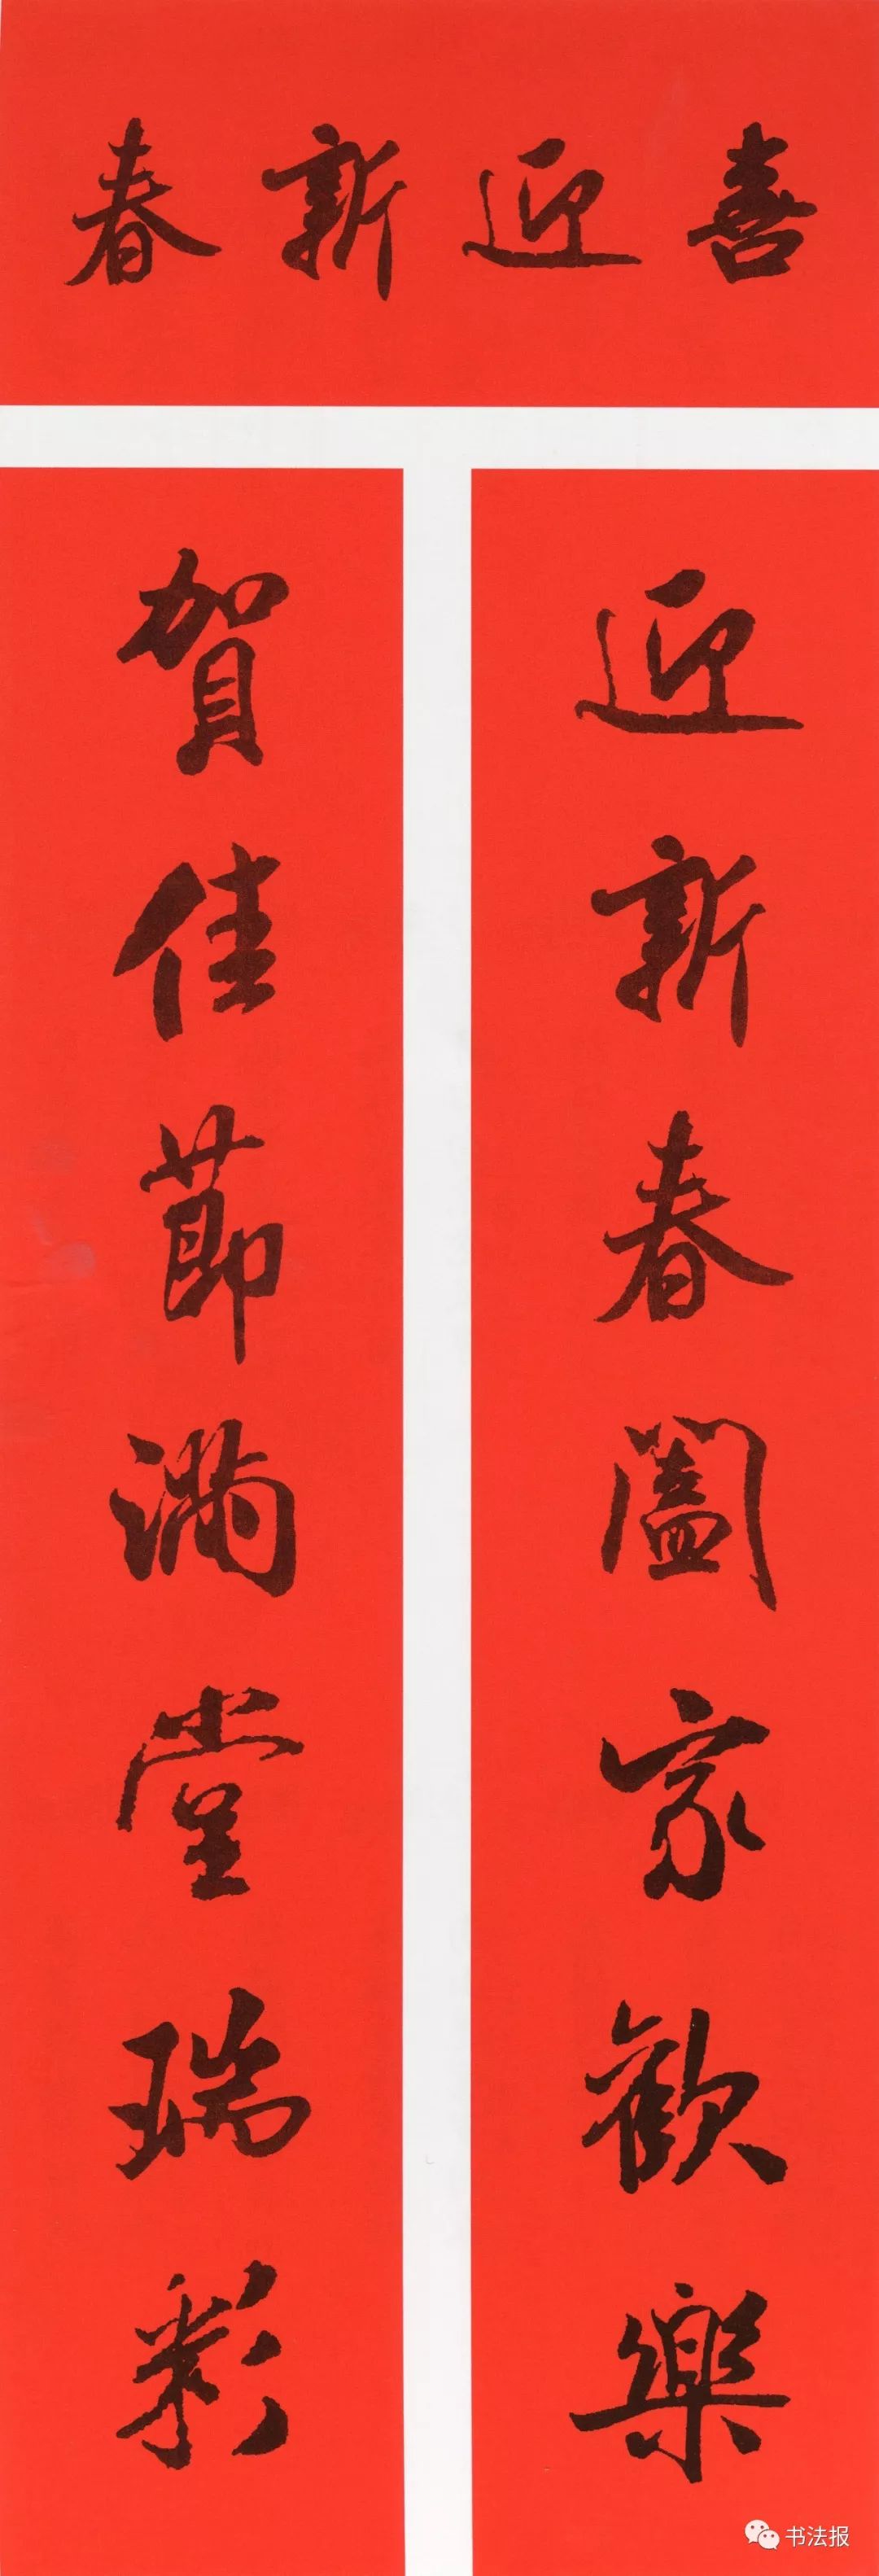 喜迎新春
迎新春闔家歡樂
賀佳節滿堂瑞彩
书法报